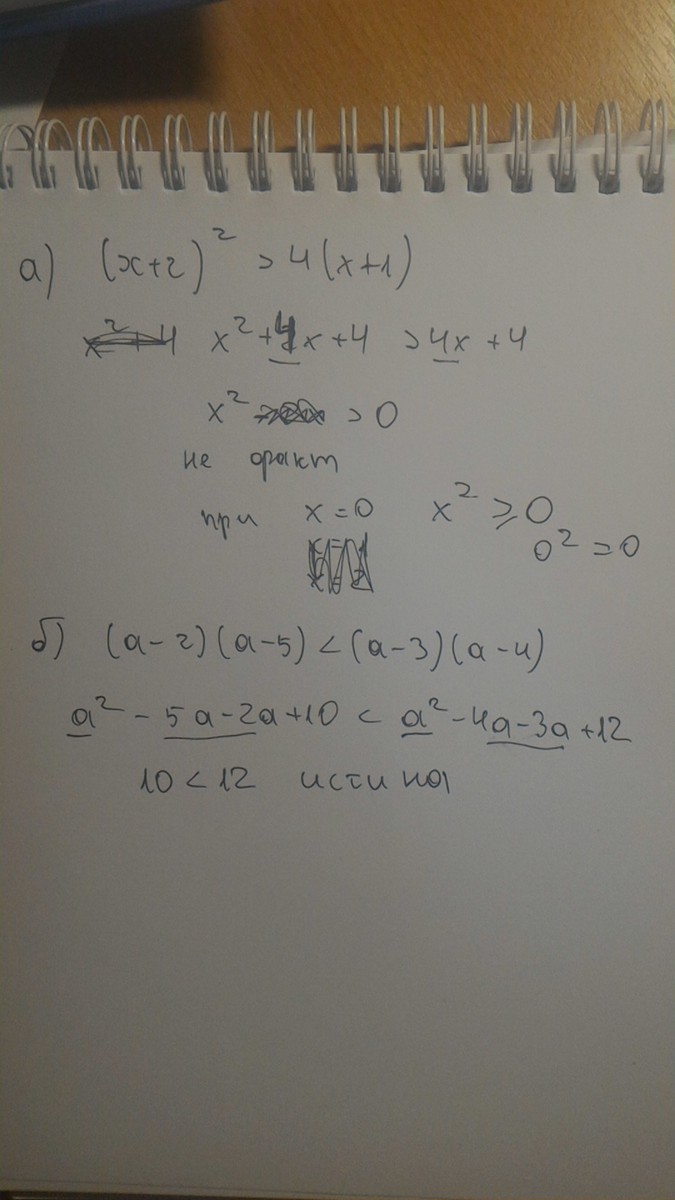 а) (x+2)² > 4(x+1)
x²+4x+4 > 4x+4
x² > 0
не факт
при x=0 x² ⩾ 0
0² = 0
б) (a-2)(a-5) < (a-3)(a-4)
a² - 5a - 2a + 10 < a² - 4a - 3a + 12
10 < 12 истина